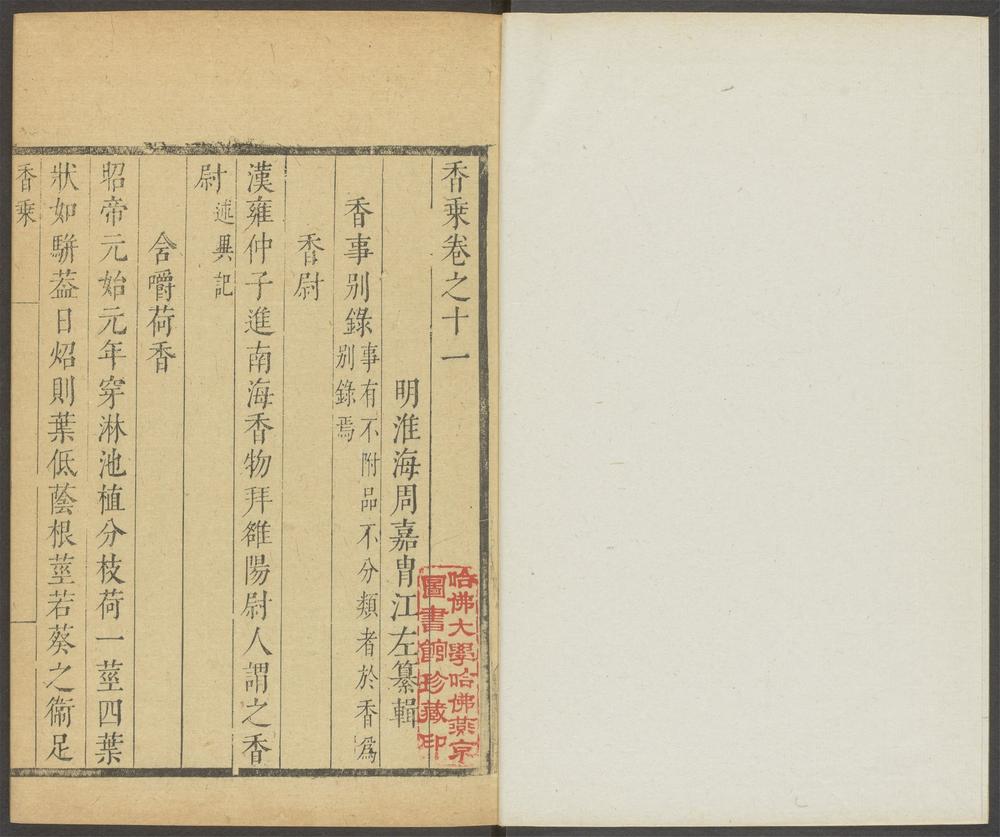 香乗卷之十一
明淮海周嘉胄江左纂輯
香事别錄事有不附品不分類者於香爲
别錄焉
香尉
漢雍仲子進南海香物拜雒陽尉人謂之香
尉述異記
含嚼荷香
昭帝元始元年穿淋池植分枝荷一莖四葉
狀如駢葢日炤則葉低蔭根莖若葵之衞足
香乗
哈佛大學哈佛燕京
圖書館珍藏印